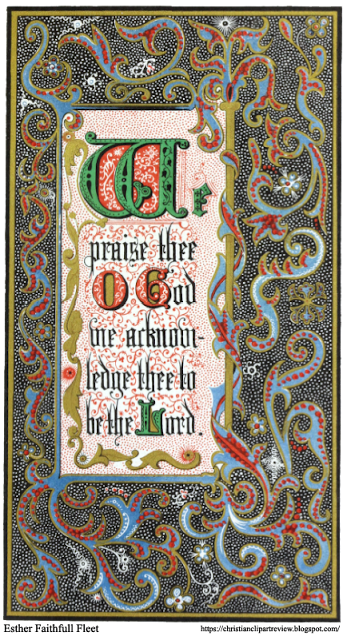 We
praise thee
O God
we acknow-
ledge thee to
be the Lord.
Esther Faithfull Fleet
https://christianclipartreview.blogspot.com/